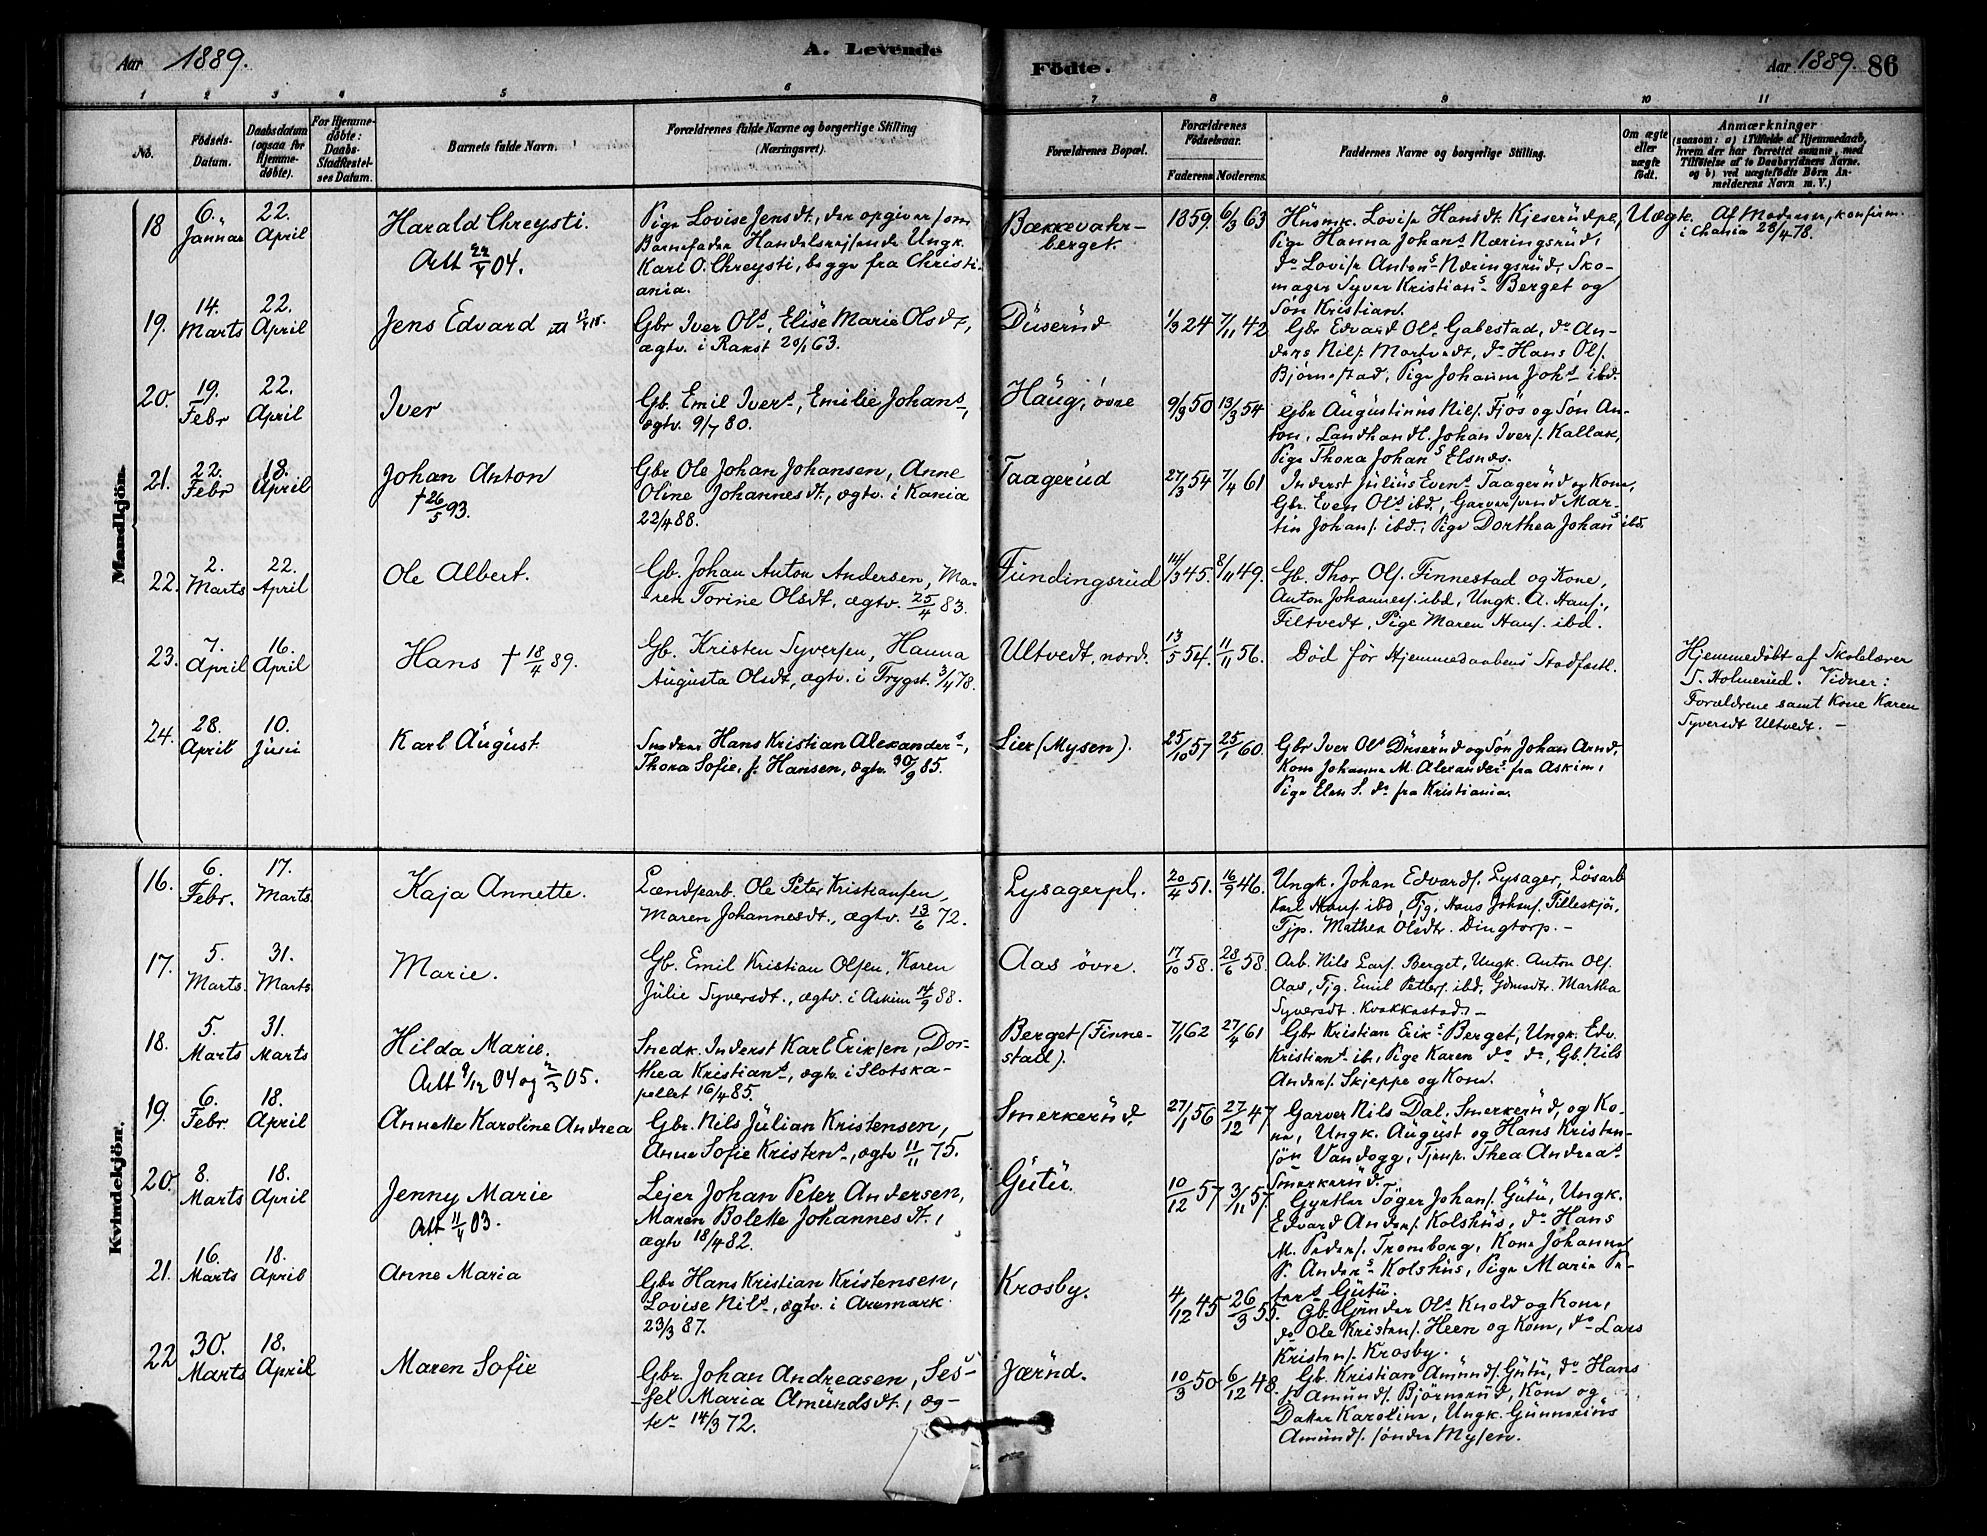 Aar 1889.
A. Levende
Födte.
Aar 1889. 86
1 2 3 4 5 6 7 8 9 10 11
No.
Födsels-
Datum.
Daabsdatum
(ogsaa for
Hjemme-
døbte).
For Hjemme-
døbte:
Daabs-
Stadfæstel-
ses Datum.
Barnets fulde Navn.
Forældrenes fulde Navne og borgerlige Stilling
(Næringsvei).
Forældrenes Bopæl.
Forældrenes
Fødselsaar.
Faderens. Moderens.
Faddernes Navne og borgerlige Stilling.
Om ægte
eller
uægte
født.
Anmærkninger
(saasom: a) i Tilfælde af Hjemmedaab,
hvem der har forrettet samme, med
Tilføielse af to Daabsvidners Navne.
og b) ved uægtefødte Børn An-
melderens Navn m. V.)
Mandkjön.
18
6.
Januar
22.
April
Harald Chreysti.
Att 22/4 04.
Pige Lovise Jensdt., der opgiver som
Barnefader Handelsrejsende Ungk.
Karl O. Chreysti, begge fra Christi-
ania.
Bækkevahr-
berget.
1859. 6/3 63
Husmk. Lovise Hansdt. Kjeserudpl.,
Pige Hanna Johans. Næringsrud,
do Lovise Antons. Næringsrud, Sko-
mager Syver Kristians. Berget og
Søn Kristian.
Uægt.
Af Moderen, konfirm.
i Chania 28/4 78.
19.
14.
Marts
22.
April
Jens Edvard
Gbr Iver Ols., Elise Marie Olsdt.,
ægtv. i Rakst 20/1 63.
Duserud
1/3 24 7/11 42
Gbr Edvard Ols. Gabestad, do An-
ders Nils. Mortvedt, do Hans Ols.
Bjørnestad, Pige Johanne Johs. ibd.
20.
19.
Febr
22.
April
Iver
Gb. Emil Ivers., Emilie Johans.,
ægtv. 9/7 80.
Haug, øvre
9/9 50 13/3 54
Gbr Augustinus Nils. Fjøs og Søn An-
ton, Landhandl. Johan Ivers. Kallak,
Pige Thora Johans. Elsnes.
21.
22.
Febr
18.
April
Johan Anton
† 26/5 93.
Gbr Ole Johan Johansen, Anne
Oline Johannesdt., ægtv. i Kania
22/4 88.
Taagerud
27/3 54 7/4 61
Inderst Julius Evens. Taagerud og Kone,
Gbr. Even Ols. ibd., Garversvend Mar-
tin Johans. ibd., Pige Dorthea Johans. ibd.
22.
2.
Marts
22.
April
Ole Albert.
Gb. Johan Anton Andersen, Ma-
ren Torine Olsdt., ægtv. 25/4 83.
Fundingsrud
14/3 45. 8/11 49.
Gb. Thor Ols. Finnestad og Kone,
Anton Johanness. ibd, Ungk. A. Hans.,
Filtvedt, Pige Maren Hans. ibd.
23.
7.
April
16.
April
Hans † 18/4 89.
Gb. Kristen Syversen, Hanna
Augusta Olsdt., ægtv. i Trygst. 3/4 78.
Ultvedt, nord.
13/5 54. 11/11 56.
Død før Hjemmedaabens Stadfæstl.
Hjemmedøbt af Skolelærer
S. Holmerud. Vidner:
Forældrene samt Kone Karen
Syversdt Ultvedt. –
24.
28.
April
10.
Juni
Karl August
Snedker Hans Kristian Alexanders.,
Thora Sofie, f. Hansen, ægtv. 30/9 85.
Lier (Mysen).
25/10 57 25/1 60.
Gbr Iver Ols. Duserud og Søn Johan Arnd,
Kone Johanne M. Alexanders. fra Askim,
Pige Elen S. do fra Kristiania.
Kvindekjön.
16.
6.
Febr.
17.
Marts.
Kaja Annette.
Lændsarb. Ole Peter Kristiansen,
Maren Johannesdt., ægtv. 13/6 72.
Lysagerpl.
20/4 51. 16/9 46.
Ungk. Johan Edvards. Lysager, Løsarb
Karl Hans. ibd, Tjg. Hans Johans. Tilleskjør,
Tjp. Mathea Olsdtr. Dingtorp. –
17.
5.
Marts.
31.
Marts.
Marie.
Gb. Emil Kristian Olsen, Karen
Julie Syversdt., ægtv. i Askim 14/9 88.
Aas øvre.
17/10 58. 28/6 58.
Arb. Nils Lars. Berget, Ungk. Anton Ols.
Aas, Tjg. Emil Petters. ibd, Gdmsdt. Martha
Syversdt. Krakkestad –
18.
5.
Marts
31.
Marts
Hilda Marie.
Att 9/12 04 og 2/3 05.
Snedk. Inderst Karl Eriksen, Dor-
thea Kristians., ægtv. i Slotska-
pellet 16/4 85.
Berget (Finne-
stad).
7/1 62 27/4 61
Gbr Kristian Eriks. Berget, Ungk. Edv.
Kristians. ib., Pige Karen do do, Gb. Nils
Anders. Skjeppe og Kone.
19.
6.
Febr.
18.
April
Annette Karoline Andrea
Gbr. Nils Julian Kristensen,
Anne Sofie Kristens., ægtv 11/11 75.
Smerkerud.
27/1 56 27/12 47
Garver Nils Dal. Smerkerud, og Ko-
ne, Ungk. August og Hans Kristen-
søn Vandogg, Tjenp. Thea Andreas.
Smerkerud.
20.
8.
Marts
18.
April
Jenny Marie
Att 11/4 03.
Lejer Johan Peter Andersen,
Maren Bolette Johannesdt.,
ægtv 18/4 82.
Gutu.
10/12 57 3/11 57.
Gjørtler Tøger Johans. Gutu, Ungk.
Edvard Anders. Kolshus, do Hans
M. Peders. Tromborg, Kone Johanne
P. Anders. Kolshus, Pige Marie Pe-
ters. Gutu.
21.
16.
Marts
18.
April
Anne Maria
Gbr Hans Kristian Kristensen,
Lovise Nils., ægtv. i Aremark
23/3 87.
Krosby.
4/12 45 26/3 55.
Gb. Gunder Ols. Knold og Kone,
do Ole Kristens. Heen og Kone, do Lars
Kristens. Krosby.
22
30.
Marts
18.
April
Maren Sofie
Gbr. Johan Andreasen, Ses-
sel Maria Amundsdt., æg-
tv. 14/3 72.
Jærnd.
10/3 50 6/12 48.
Gb. Kristian Amunds. Gutu, do Hans
P. Amunds. Bjørnerud, Kone og
Datter Karoline, Ungk. Gunnerius
Amunds. søndre Mysen.